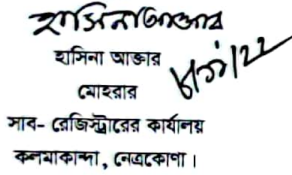 হাসিনা আক্তার
হাসিনা আক্তার
মোহরার
সাব- রেজিস্ট্রারের কার্যালয়
কলমাকান্দা, নেত্রকোণা।